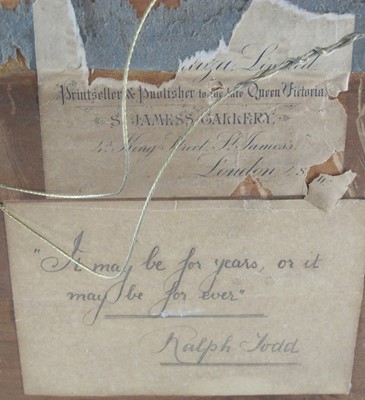 Limited
Printseller & Publisher to the late Queen Victoria,
S. JAMES'S GALLERY,
King Street, St. James's
London, S.W.
"It may be for years, or it
may be for ever"
Ralph Todd